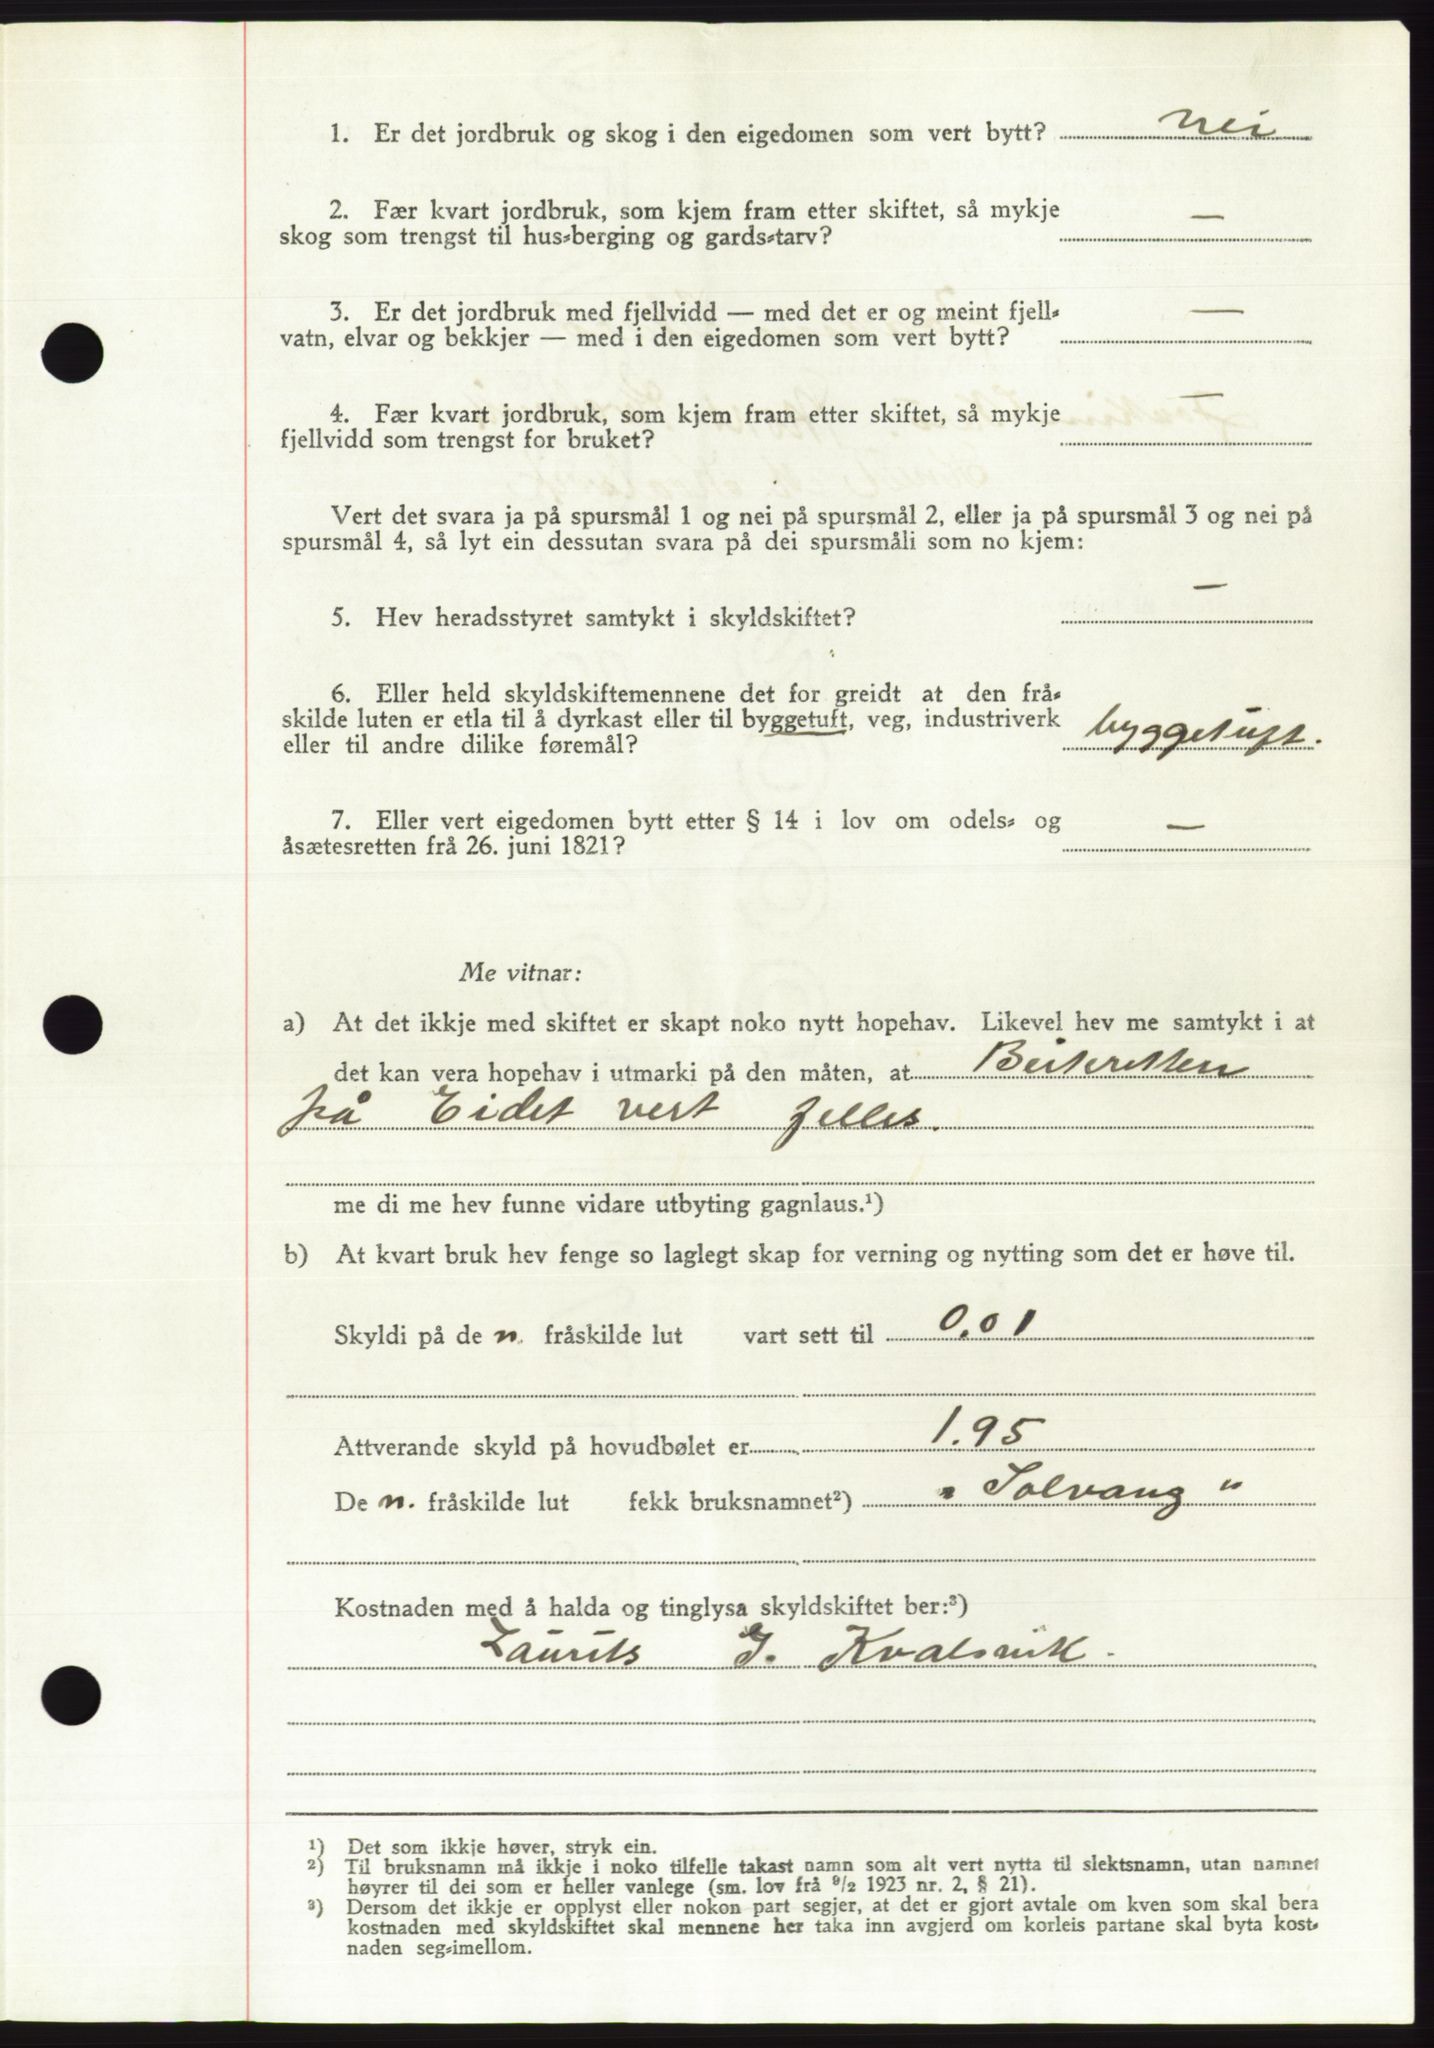 1. Er det jordbruk og skog i den eigedomen som vert bytt? nei
2. Fær kvart jordbruk, som kjem fram etter skiftet, så mykje —
skog som trengst til hus-berging og gards-tarv?
3. Er det jordbruk med fjellvidd — med det er og meint fjell- —
vatn, elvar og bekkjer — med i den eigedomen som vert bytt?
4. Fær kvart jordbruk, som kjem fram etter skiftet, så mykje —
fjellvidd som trengst for bruket?
Vert det svara ja på spursmål 1 og nei på spursmål 2, eller ja på spursmål 3 og nei på
spursmål 4, så lyt ein dessutan svara på dei spursmåli som no kjem:
5. Hev heradsstyret samtykt i skyldskiftet? —
6. Eller held skyldskiftemennene det for greidt at den frå-
skilde luten er etla til å dyrkast eller til byggetuft, veg, industriverk
eller til andre dilike føremål? byggetuft.
7. Eller vert eigedomen bytt etter § 14 i lov om odels- og —
åsætesretten frå 26. juni 1821?
Me vitnar:
a) At det ikkje med skiftet er skapt noko nytt hopehav. Likevel hev me samtykt i at
det kan vera hopehav i utmarki på den måten, at Beiteretten
på Eidet vert felles.
me di me hev funne vidare utbyting gagnlaus.¹)
b) At kvart bruk hev fenge so laglegt skap for verning og nytting som det er høve til.
Skyldi på de n. fråskilde lut vart sett til 0.01
Attverande skyld på hovudbølet er 1.95
De n. fråskilde lut fekk bruksnamnet²) "Solvang"
Kostnaden med å halda og tinglysa skyldskiftet ber:³)
Laurits J. Kvalsvik.
¹) Det som ikkje høver, stryk ein.
²) Til bruksnamn må ikkje i noko tilfelle takast namn som alt vert nytta til slektsnamn, utan namnet
høyrer til dei som er heller vanlege (sm. lov frå ⁹/2 1923 nr. 2, § 21).
³) Dersom det ikkje er opplyst eller nokon part segjer, at det er gjort avtale om kven som skal bera
kostnaden med skyldskiftet skal mennene her taka inn avgjerd om korleis partane skal byta kost-
naden seg-imellom.